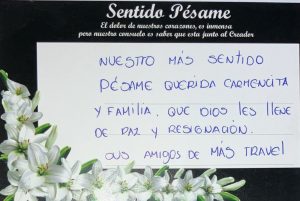 Sentido Pésame
El dolor de nuestros corazones, es inmensa
pero nuestro consuelo es saber que esta junto al Creador
NUESTTO MÁS SENTIDO
PÉSAME QUERIDA CARMENCITA
Y FAMILIA. QUE DIOS LES LLENE
DE PAZ Y RESIGNACIÓN.
SUS AMIGOS DE MÁS TRAVEL